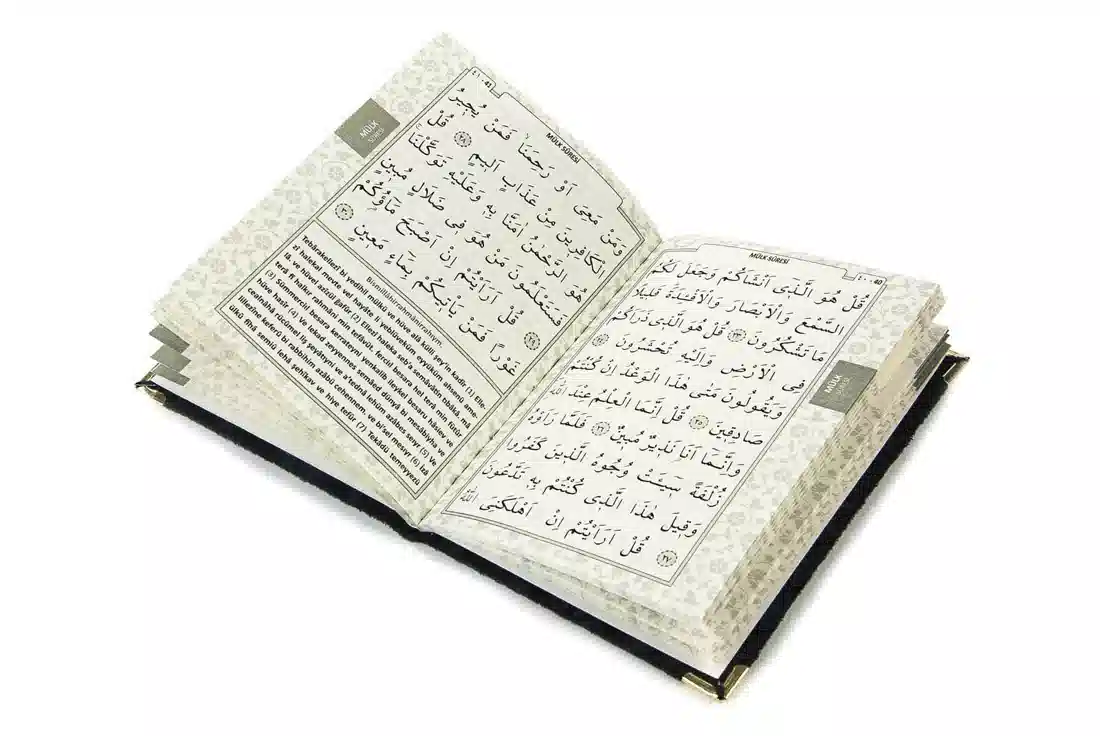 MÜLK SÛRESİ
٤٠ - 40
قُلْ هُوَ الَّذ۪ٓي اَنْشَاَكُمْ وَجَعَلَ لَكُمُ
السَّمْعَ وَالْاَبْصَارَ وَالْاَفْـِٔدَةَ قَل۪يلًا
مَا تَشْكُرُونَ ﴿٢٣﴾ قُلْ هُوَ الَّذ۪ي ذَرَاَكُمْ
فِي الْاَرْضِ وَاِلَيْهِ تُحْشَرُونَ ﴿٢٤﴾
وَيَقُولُونَ مَتٰى هٰذَا الْوَعْدُ اِنْ كُنْتُمْ
صَادِق۪ينَ ﴿٢٥﴾ قُلْ اِنَّمَا الْعِلْمُ عِنْدَ اللّٰهِ
وَاِنَّمَٓا اَنَا۬ نَذ۪يرٌ مُب۪ينٌ ﴿٢٦﴾ فَلَمَّا رَاَوْهُ
زُلْفَةً س۪ٓيـَٔتْ وُجُوهُ الَّذ۪ينَ كَفَرُوا
وَق۪يلَ هٰذَا الَّذ۪ي كُنْتُمْ بِه۪ تَدَّعُونَ
﴿٢٧﴾ قُلْ اَرَاَيْتُمْ اِنْ اَهْلَكَنِيَ اللّٰهُ
MÜLK
SÛRESİ
MÜLK SÛRESİ
٤١ - 41
وَمَنْ مَعِيَ اَوْ رَحِمَنَا فَمَنْ يُج۪يرُ
الْكَافِر۪ينَ مِنْ عَذَابٍ اَل۪يمٍ ﴿٢٨﴾ قُلْ
هُوَ الرَّحْمٰنُ اٰمَنَّا بِه۪ وَعَلَيْهِ تَوَكَّلْنَا
فَسَتَعْلَمُونَ مَنْ هُوَ ف۪ي ضَلَالٍ مُب۪ينٍ
﴿٢٩﴾ قُلْ اَرَاَيْتُمْ اِنْ اَصْبَحَ مَٓاؤُ۬كُمْ
غَوْرًا فَمَنْ يَاْت۪يكُمْ بِمَٓاءٍ مَع۪ينٍ ﴿٣٠﴾
MÜLK
SÛRESİ
Bismillâhirrahmânirrahıym.
Tebârakellezî bi yedihil mülkü ve hüve alâ külli şey'in kadîr (1) Elle-
zî halekal mevte vel hayâte li yeblüveküm eyyüküm ahsenü ame-
lâ, ve hüvel azîzül ğafûr (2) Ellezî haleka seb'a semâvâtin tıbâkâ, mâ
terâ fî halkır rahmâni min tefâvüt, ferciıl besara hel terâ min fütûr
(3) Sümmerciıl besara kerrateyni yenkalib ileykel besaru hâsiev ve
hüve hasîr (4) Ve lekad zeyyennes semâed dünyâ bi mesâbîyha ve
cealnâhâ rücûmel liş şeyâtîyni ve a'tednâ lehüm azâbes seıyr (5) Ve
lillezîne keferû bi rabbihim azâbü cehennem, ve bi'sel mesıyr (6) İzâ
ülkû fîhâ semiû lehâ şehîkav ve hiye tefûr (7) Tekâdü temeyyezü